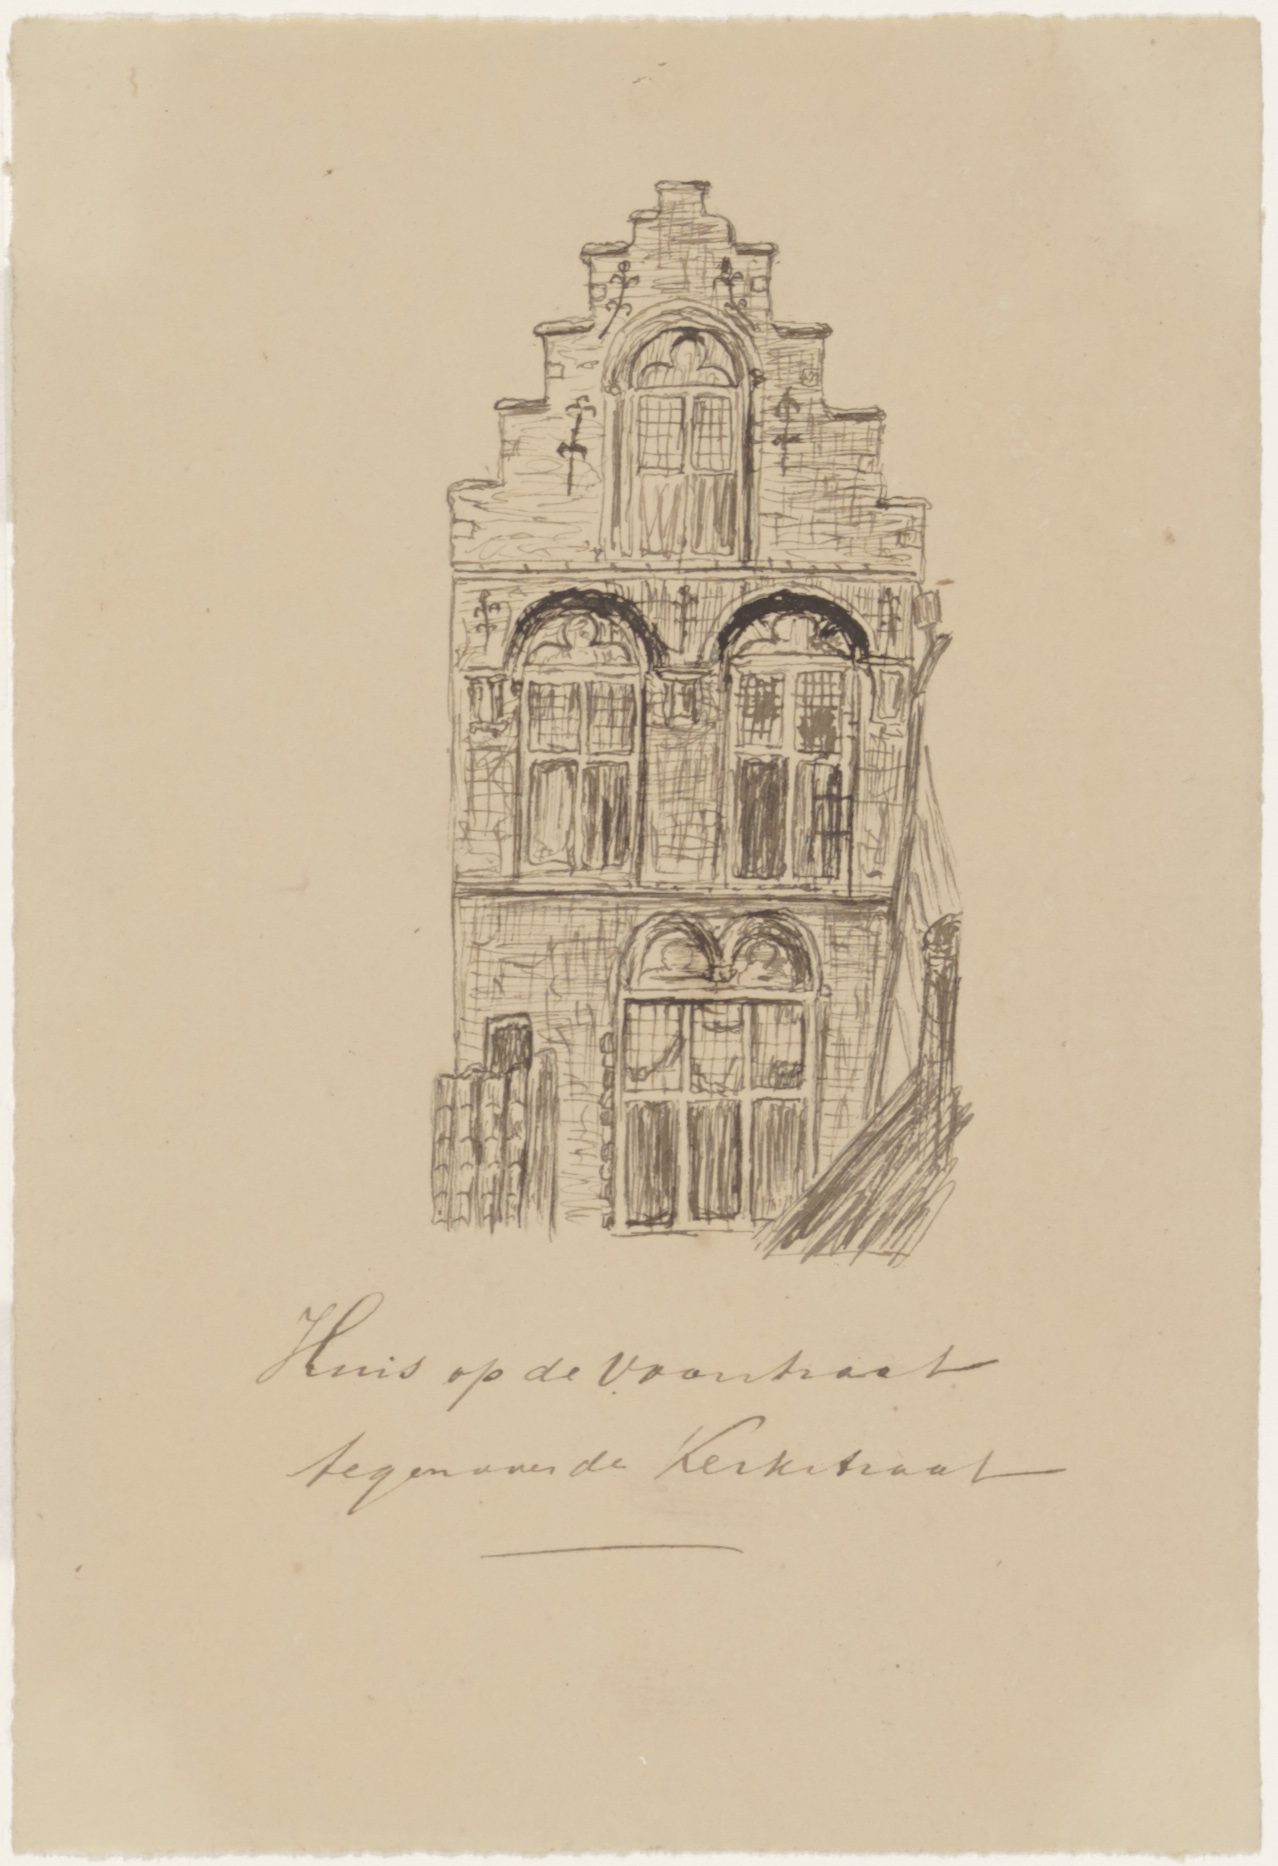 Huis op de Voorstraat
tegenover de Kerkstraat